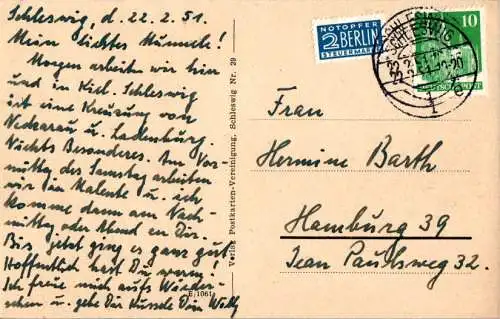 Schleswig, d. 22.2.51.
Mein liebes Mumele!
Morgen arbeiten wir hier
und in Kiel. Schleswig
ist eine Kreuzung von
Neckarau u. Ladenburg.
Nichts Besonderes. Am Vor-
mittag des Samstag arbeiten
wir in Malente u. ich
komme dann am Nach-
mittag oder Abend zu Dir.
Bis jetzt ging es ganz gut.
Hoffentlich hast Du warm!
Ich freue mich aufs Wieder-
sehen u. gebe Dir Küsse Dein Willy
E. 1061
Verlag Postkarten-Vereinigung, Schleswig Nr. 29
NOTOPFER
2 BERLIN
STEUERMARKE
10
DEUTSCHE POST
SCHLESWIG
22.2.51
Frau
Hermine Barth
Hamburg 39
Jean Paulsweg 32.